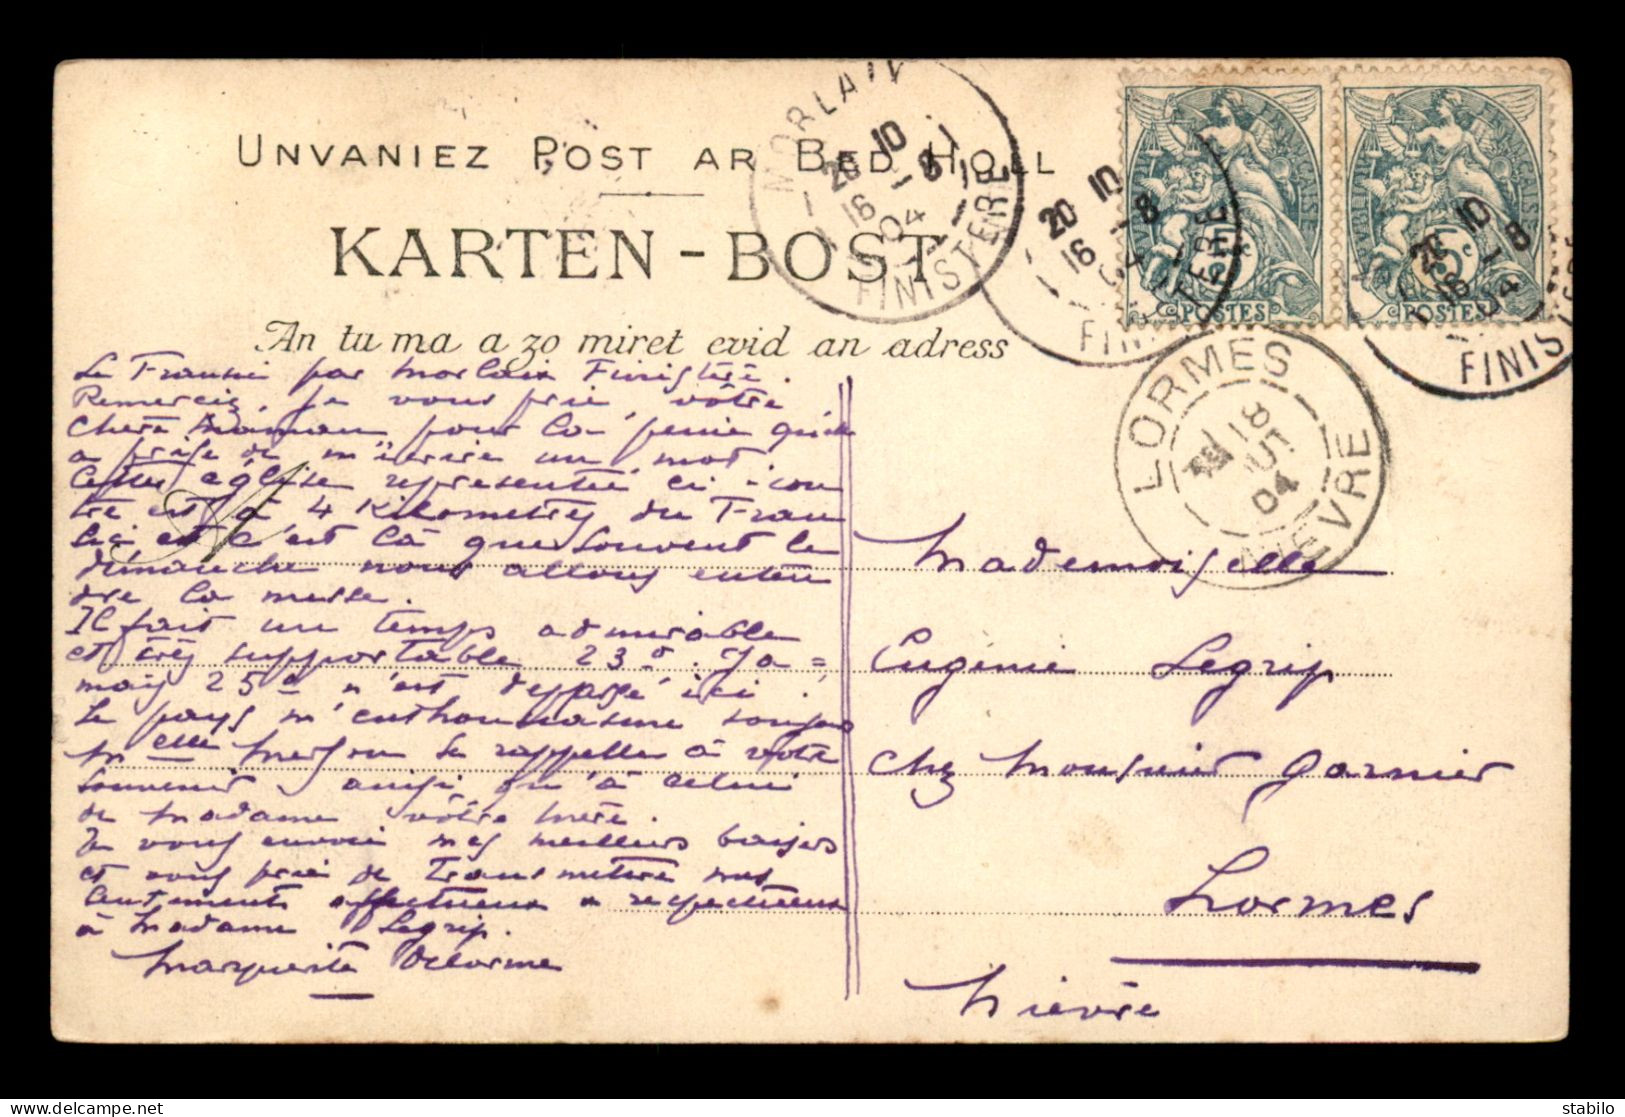 UNVANIEZ POST AR BED HOLL
KARTEN-BOST
An tu ma a zo miret evid an adress
MORLAIX
20 10
16 -8
04
FINISTERE
20 10
16 -8
04
FINISTERE
20 10
16 -8
04
FINIS
REPUBLIQUE FRANÇAISE
5c
POSTES
5c
POSTES
LORMES
18
OUT
04
NIEVRE
Le Frausic par Morlaix Finistère.
Remerciez, je vous prie vôtre
chère maman pour la peine qu'elle
a prise de m'écrire un mot.
Cette église representée ci-con
tre est à 4 Kilometres du Frau
sic et c'est là que souvent le
dimanche nous allons enten
dre la messe.
Il fait un temps admirable
et très supportable 23°. Ja=
mais 25° n'est dépassé ici.
Le pays m'enthousiasme toujours
Melle se rappelle à votre
souvenir ainsi qu'à celui
de Madame vôtre mère.
Je vous envoie mes meilleurs baisers
et vous prie de transmettre mes
sentiments affectueux & respectueux
à Madame Legrip.
Marguerite Delorme
Mademoiselle
Eugénie Legrip
chez Monsieur Garnier
Lormes
Nièvre
stabilo
delcampe.net